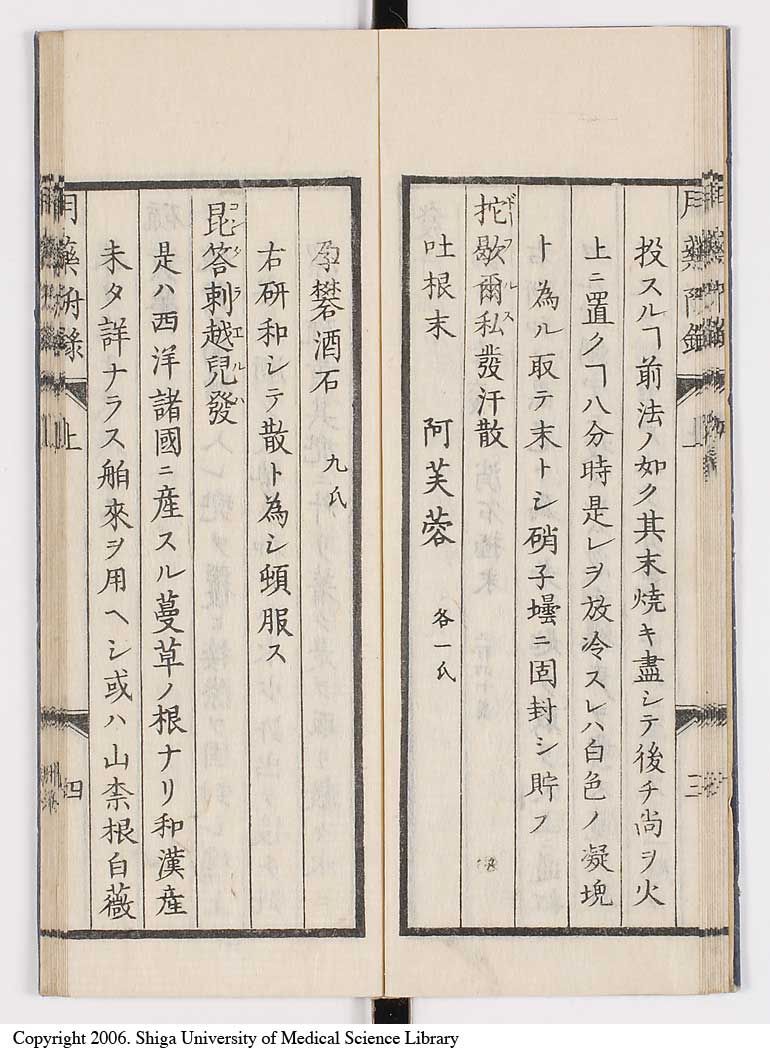 投スルヿ前法ノ如ク其末焼キ盡シテ後チ尚ヲ火
上ニ置クヿ八分時是レヲ放冷スレハ白色ノ凝塊
ト為ル取テ末トシ硝子壜ニ固封シ貯フ
抡歇爾私發汗散
ドーフルス
吐根末 阿芙蓉 各一氏
孕礬酒石 九氏
右研和シテ散ト為シ頓服ス
昆答刺越兒發
コンタラエルハ
是ハ西洋諸國ニ産スル蔓草ノ根ナリ和漢産
未タ詳ナラス舶來ヲ用ヘシ或ハ山柰根白薇
用藥附録 上 四
Copyright 2006. Shiga University of Medical Science Library